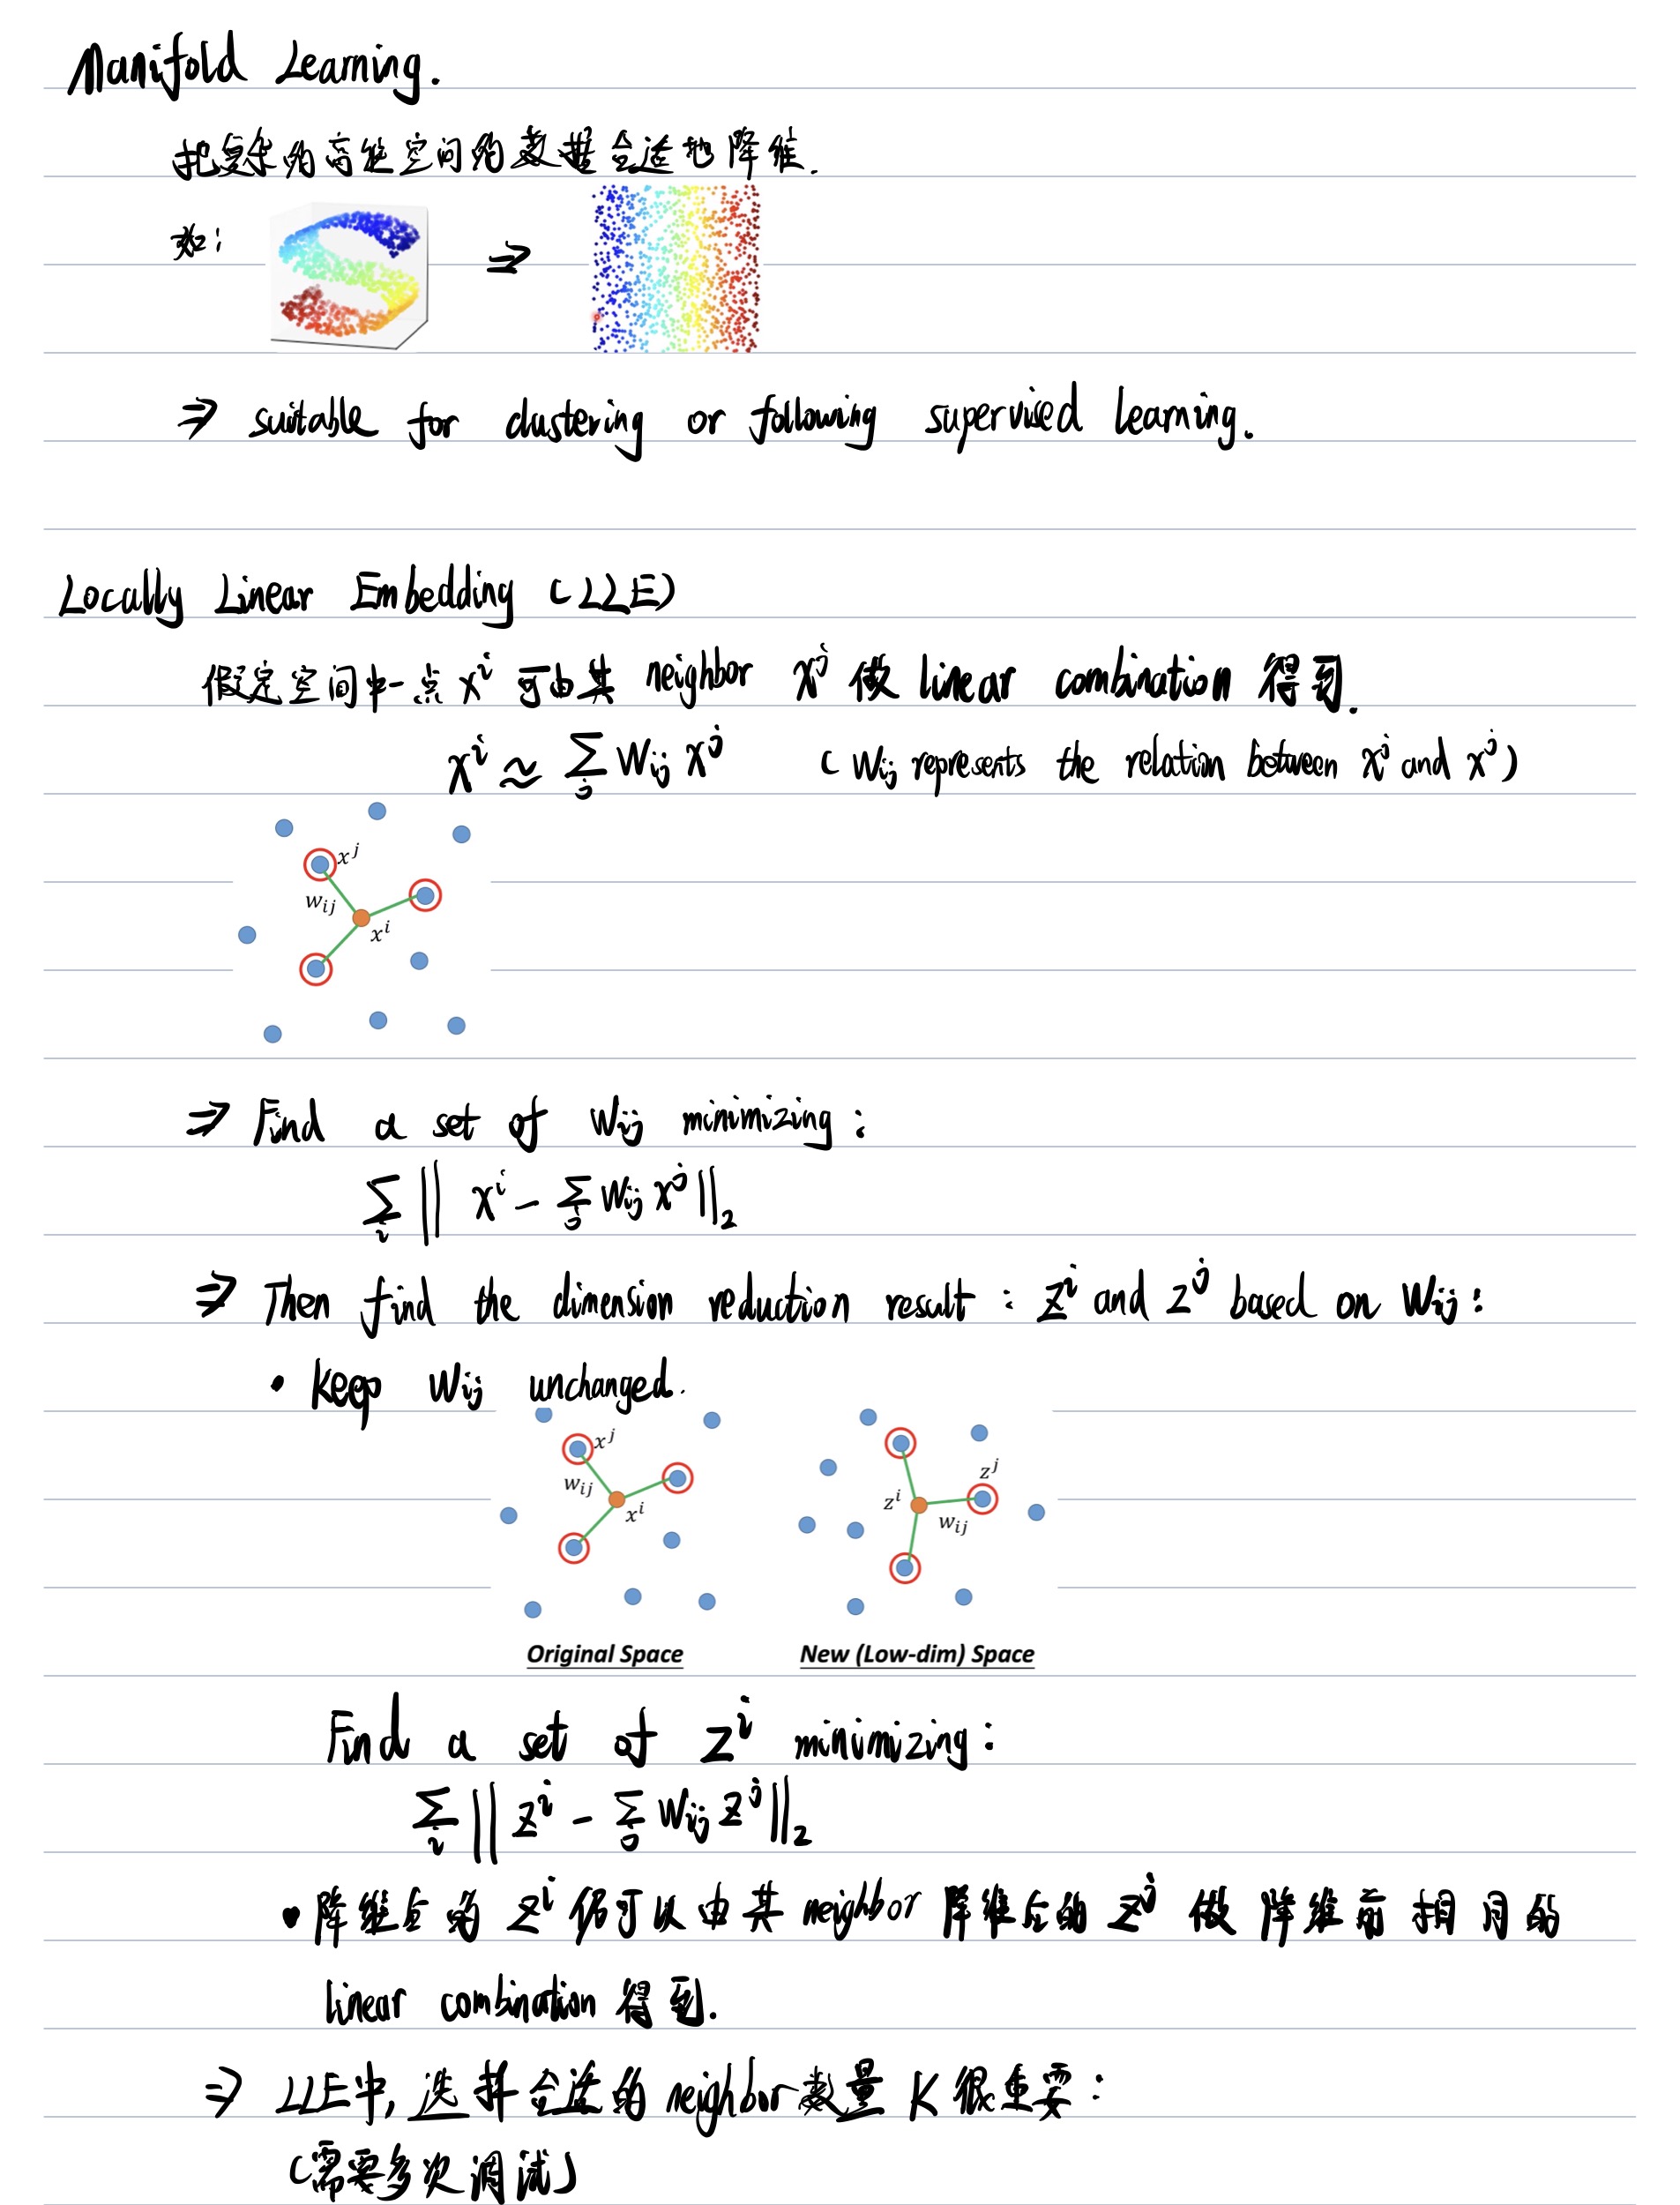 Manifold Learning.
把复杂的高维空间的数据合适地降维.
如:
⇒
⇒ suitable for clustering or following supervised learning.
Locally Linear Embedding (LLE)
假定空间中一点 xⁱ 可由其 neighbor xʲ 做 linear combination 得到.
xⁱ ≈ Σⱼ Wᵢⱼ xʲ (Wᵢⱼ represents the relation between xⁱ and xʲ)
xʲ
wᵢⱼ
xⁱ
⇒ Find a set of Wᵢⱼ minimizing:
Σᵢ ‖ xⁱ - Σⱼ Wᵢⱼ xʲ ‖₂
⇒ Then find the dimension reduction result: zⁱ and zʲ based on Wᵢⱼ:
• Keep Wᵢⱼ unchanged.
xʲ
wᵢⱼ
xⁱ
zʲ
zⁱ
wᵢⱼ
Original Space New (Low-dim) Space
Find a set of zⁱ minimizing:
Σᵢ ‖ zⁱ - Σⱼ Wᵢⱼ zʲ ‖₂
• 降维后的 zⁱ 仍可以由其 neighbor 降维后的 zʲ 做 降维前相同的
linear combination 得到.
⇒ LLE中, 选择合适的 neighbor 数量 K 很重要:
(需要多次调试)